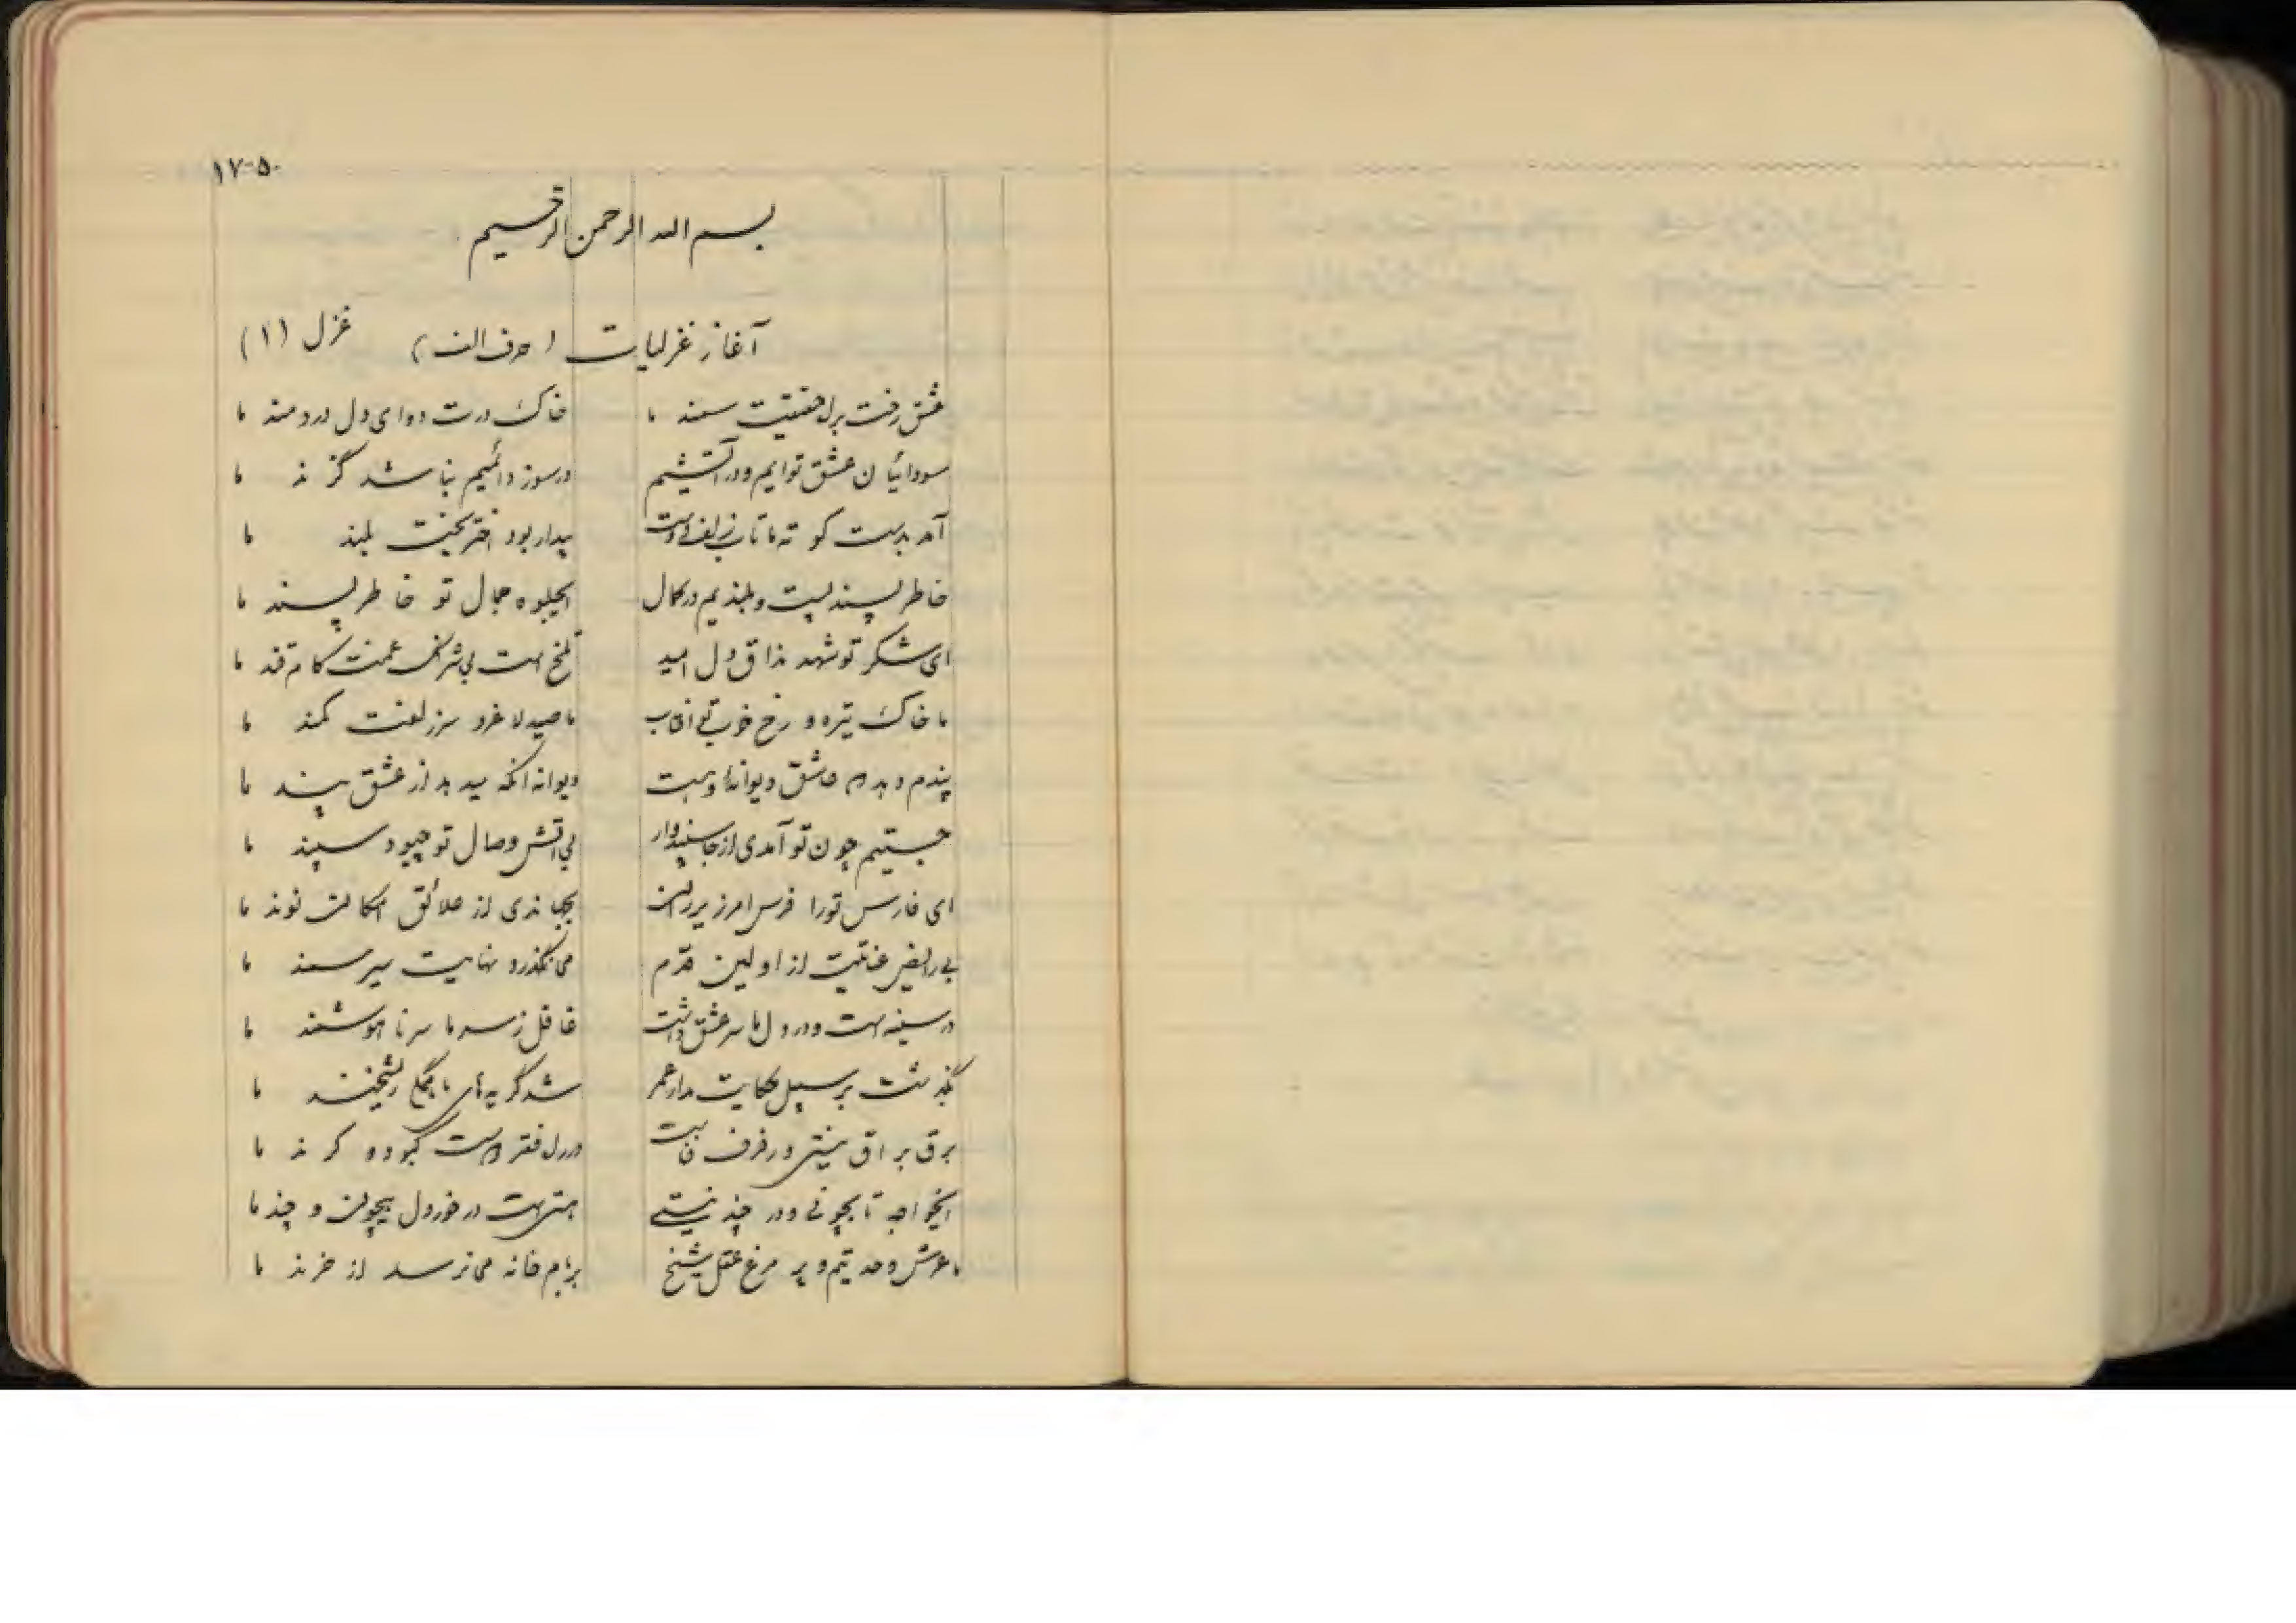 ۱۷۵۰
بسم الله الرحمن الرحیم
آغاز غزلیات (حرف الف) غزل (۱)
عشق رخت براه حقیقت سمند ما خاک درت دوای دل دردمند ما
سودائیان عشق توایم و در آتشیم در سوز دائمیم نباشد گزند ما
آمد بدست کوته ما تار زلف دوست بیدار بود اختر بخت بلند ما
خاطر پسند پست و بلندیم در کمال ایجلوه جمال تو خاطر پسند ما
ای شکر تو شهد مذاق دل امید تلخ است بی شرنگ غمت کام قند ما
ما خاک تیره و رخ خوب تو افتاب ما صید لاغر و سر زلفت کمند ما
پندم مده که عاشق دیوانه تو نیست دیوانه انکه میدهد از عشق پند ما
جستیم چون تو آمدی از جا سپندوار بی اتش وصال تو چبود سپند ما
ای فارس تو را فرس امرز یرران بجهاندی از علائق امکان نوند ما
عنایت از اولین قدم می نگذرد نهایت سیر سمند ما
در سینه است و در دل ما سر عشق دوست غافل ز سر ما سر ناهوشمند ما
بگذشت بر سبیل حکایت مدار عمر شد گریه های ما ریشخند ما
برق براق بینش و رفرف در راه فقر دوست کبوده کرند ما
ایخواجه تا بچونی و در چند نیستی همت در خور دل بیچون و چند ما
ما عرش وحدتیم و پر مرغ عقل شیخ بر بام خانه می نرسد از خرند ما